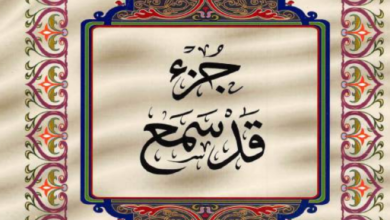 جُزء
قَدْ سَمِعَ